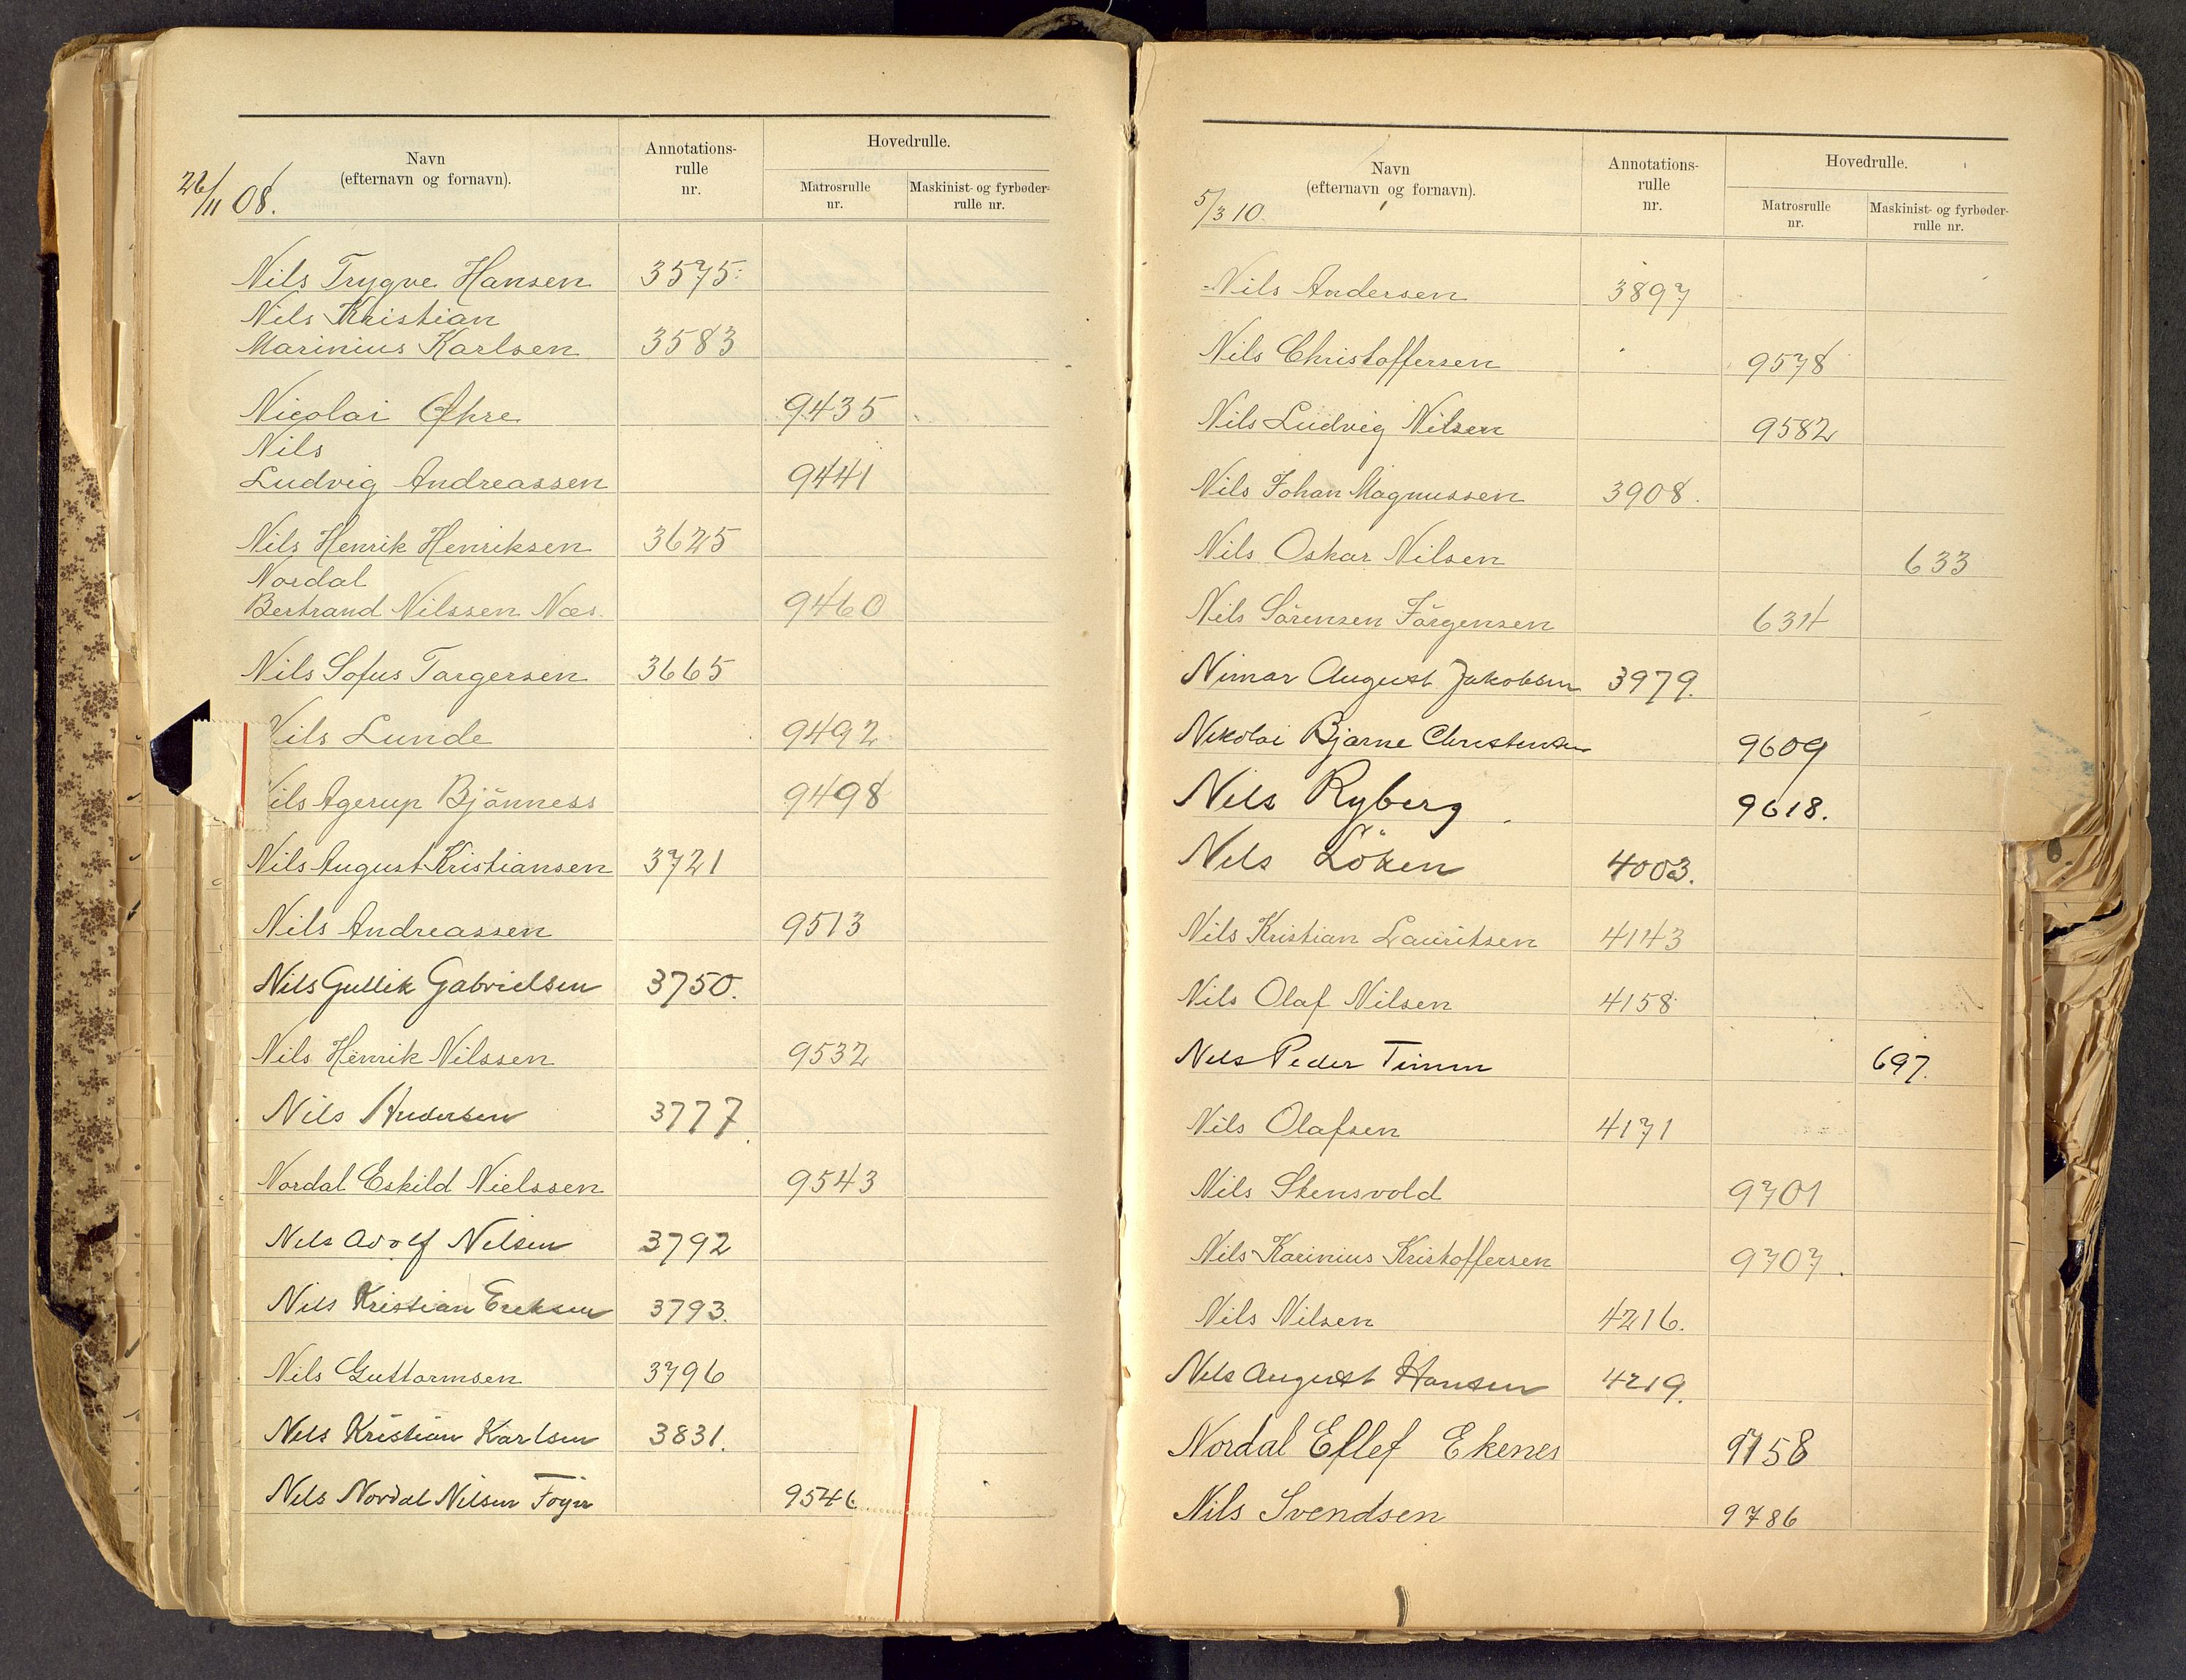 26/11 08.
Navn
(efternavn og fornavn).
Annotations-
rulle
nr.
Hovedrulle.
Matrosrulle
nr.
Maskinist- og fyrbøder-
rulle nr.
Nils Trygve Hansen 3575
Nils Kristian
Marinius Karlsen 3583
Nicolai Øhre 9435
Nils
Ludvig Andreassen 9441
Nils Henrik Henriksen 3625
Nordal
Bertrand Nilssen Næs. 9460
Nils Sofus Torgersen 3665
Nils Lunde 9492
Nils Agerup Bjönness 9498
Nils August Kristiansen 3721
Nils Andreassen 9513
Nils Gullik Gabrielsen 3750.
Nils Henrik Nilssen 9532
Nils Andersen 3777.
Nordal Eskild Nielssen 9543
Nils Adolf Nilsen 3792
Nils Kristian Ereksen 3793.
Nils Guttormsen 3796
Nils Kristian Karlsen 3831.
Nils Nordal Nilsen 9546
5/3 10.
Navn
(efternavn og fornavn).
Annotations-
rulle
nr.
Hovedrulle.
Matrosrulle
nr.
Maskinist- og fyrbøder-
rulle nr.
Nils Andersen 3897
Nils Christoffersen 9578
Nils Ludvig Nilsen 9582
Nils Johan Magnussen 3908.
Nils Oskar Nilsen 633
Nils Sörensen Jörgensen 634
Nimar August Jakobsen 3979.
Nikolai Bjarne Christensen 9609
Nils Ryberg 9618.
Nils Löken 4003.
Nils Kristian Lauritsen 4143
Nils Olaf Nilsen 4158
Nils Peder Timm 697.
Nils Olafsen 4171
Nils Stensvold 9701
Nils Karinius Kristoffersen 9707.
Nils Nilsen 4216.
Nils August Hansen 4219.
Nordal Ellef Ekenes 9758
Nils Svendsen 9786